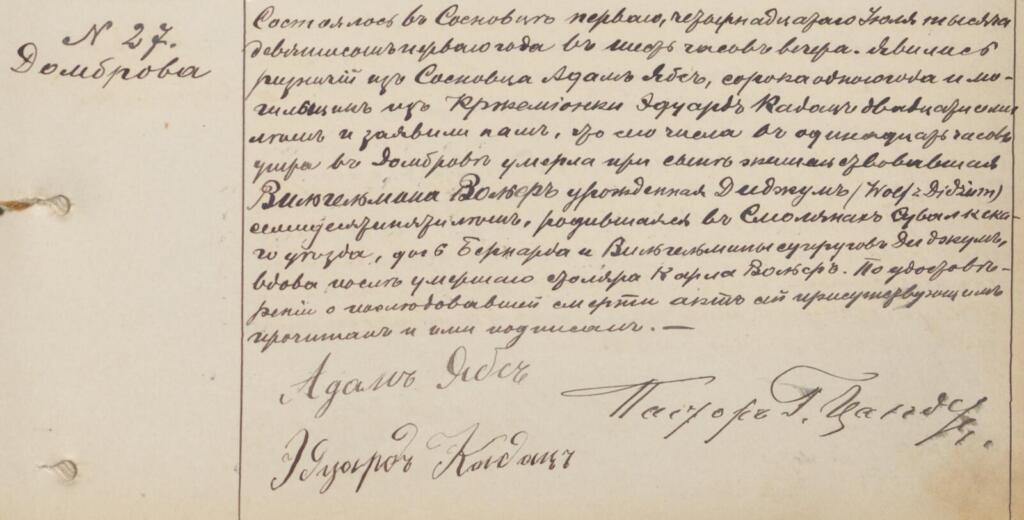 N 27.
Домброва
Состоялось въ Сосновицѣ перваго, четырнадцатаго Іюля тысяча
девятисотъ перваго года въ шесть часовъ вечера. Явились
ризничій изъ Сосновца Адамъ Ябсъ, сорока одного года и мо-
гильщикъ изъ Кржеміонки Эдуардъ Кадацъ двадцати семи
лѣтъ и заявили намъ, что сего числа въ одинадцать часовъ
утра въ Домбровѣ умерла при сынѣ жительствовавшая
Вильгельмина Вольфъ урожденная Диджумъ (Wolf z Didżum)
семидесяти пяти лѣтъ, родившаяся въ Смолянахъ Сувалкска-
го уѣзда, дочь Бернарда и Вильгельмины супруговъ Диджумъ,
вдова послѣ умершаго столяра Карла Вольфъ. По удостовѣ-
реніи о послѣдовавшей смерти актъ сей присутствующимъ
прочитанъ и ими подписанъ. —
Адамъ Ябсъ
Пасторъ Г. Цандеръ.
Эдуардъ Кадацъ